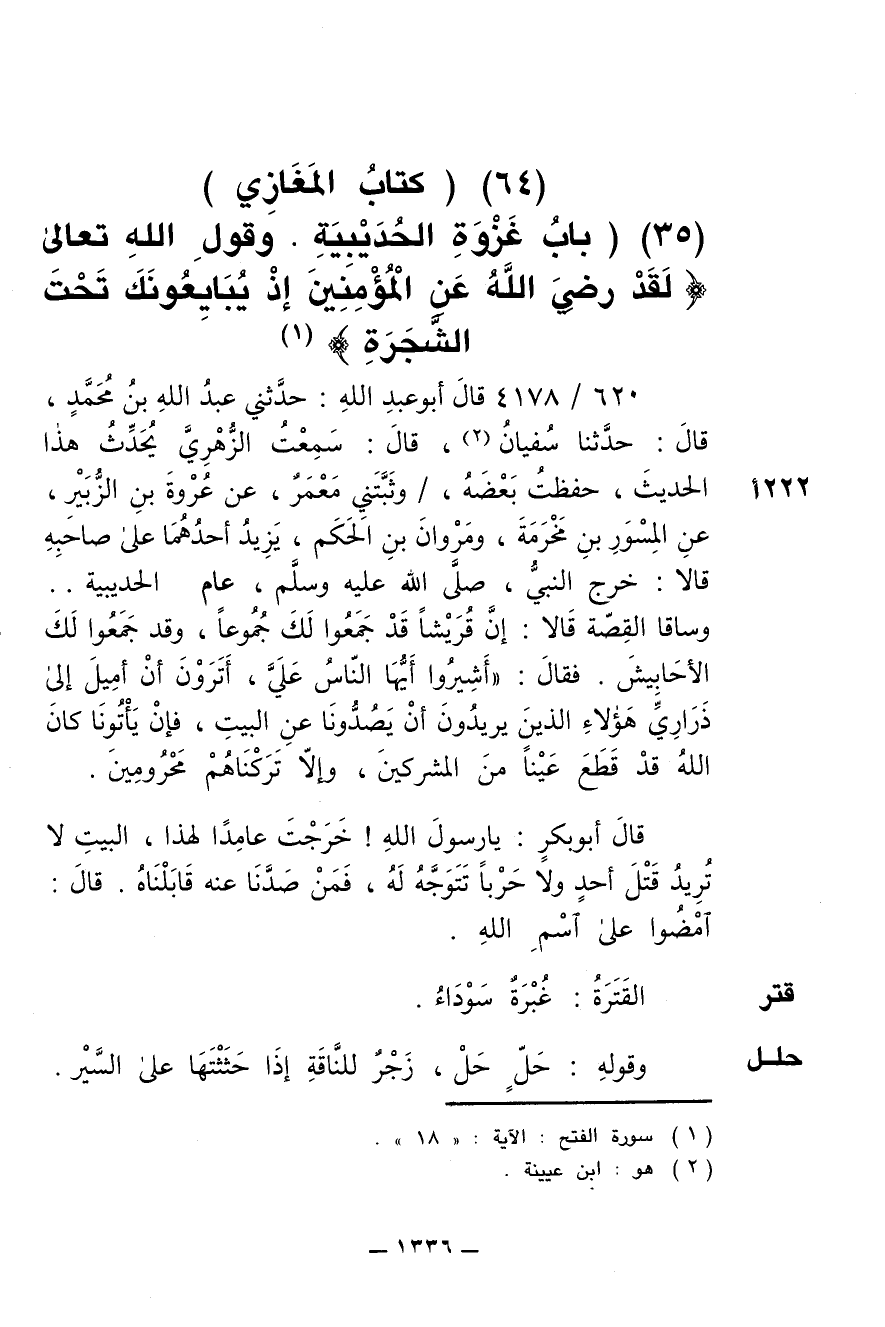 (٦٤) ( كتابُ المَغَازِي )
(٣٥) ( بابُ غَزْوَةِ الحُدَيْبِيَةِ . وقولِ اللهِ تعالىٰ
﴿ لَقَدْ رضِيَ اللَّهُ عَنِ الْمُؤْمِنِينَ إذْ يُبَايِعُونَكَ تَحْتَ
الشَّجَرَةِ ﴾ (١)
٦٢٠ / ٤١٧٨ قالَ أبوعبدِ اللهِ : حدَّثني عبدُ اللهِ بنُ مُحَمَّدٍ ،
قالَ : حدَّثنا سُفيانُ (٢) ، قالَ : سَمِعْتُ الزُّهْرِيَّ يُحَدِّثُ هذٰا
٢٢٢أ الحديثَ ، حفظتُ بَعْضَهُ ، / وثَبَّتَنِي مَعْمَرٌ ، عن عُرْوةَ بنِ الزُّبَيْر ،
عنِ المِسْوَرِ بنِ مَخْرَمَةَ ، ومَرْوانَ بنِ الحَكَم ، يَزِيدُ أحدُهُمَا علىٰ صاحَبِهِ
قالا : خرج النبيُّ ، صلَّى الله عليه وسلَّم ، عام الحديبية . .
وساقا القِصّة قَالا : إنَّ قُرَيْشاً قَدْ جَمَعُوا لَكَ جُمُوعاً ، وقد جَمَعُوا لَكَ
الأحَابِيشَ . فقالَ : «أَشِيرُوا أَيُّهَا النّاسُ عَلَيَّ ، أَتَرَوْنَ أنْ أمِيلَ إلىٰ
ذَرَارِيِّ هَؤلاءِ الذينَ يريدُونَ أنْ يَصُدُّونَا عنِ البيتِ ، فإنْ يَأْتُونَا كانَ
اللهُ قدْ قَطَعَ عَيْناً منَ المشركينَ ، وإلاّ تَرَكْنَاهُمْ مَحْرُومِينَ .
قالَ أبوبكرٍ : يارسولَ اللهِ ! خَرَجْتَ عامِدًا لهذا ، البيتِ لا
تُرِيدُ قَتْلَ أحدٍ ولا حَرْباً تَتَوَجَّهُ لَهُ ، فَمَنْ صَدَّنَا عنه قَابَلْنَاهُ . قالَ :
ٱمْضُوا علىٰ ٱسْمِ اللهِ .
قتر القَتَرَةُ : غُبْرَةٌ سَوْدَاءُ .
حلـل وقولهِ : حَلّ ٍ حَلْ ، زَجْرٌ للنَّاقَةِ إذَا حَثَثْتَهَا علىٰ السَّيْر .
(١) سورة الفتح : الآية : « ١٨ » .
(٢) هو : ابن عيينة .
ــ ١٣٣٦ ــ